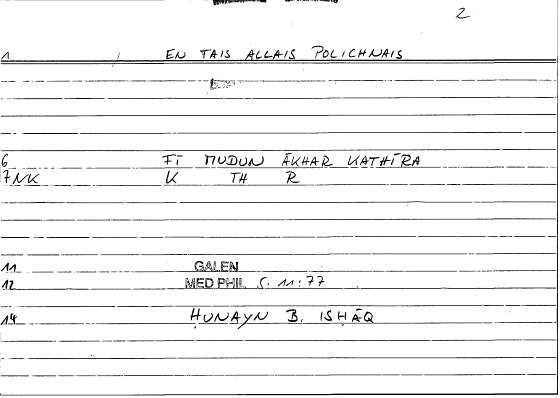 2
1 EN TAIS ALLAIS POLICHNAIS
6 FĪ MUDUN ĀKHAR KATHĪRA
7 NK K TH R
11 GALEN
12 MED PHIL 5. 11:77
14 ḤUNAYN B. ISḤĀQ